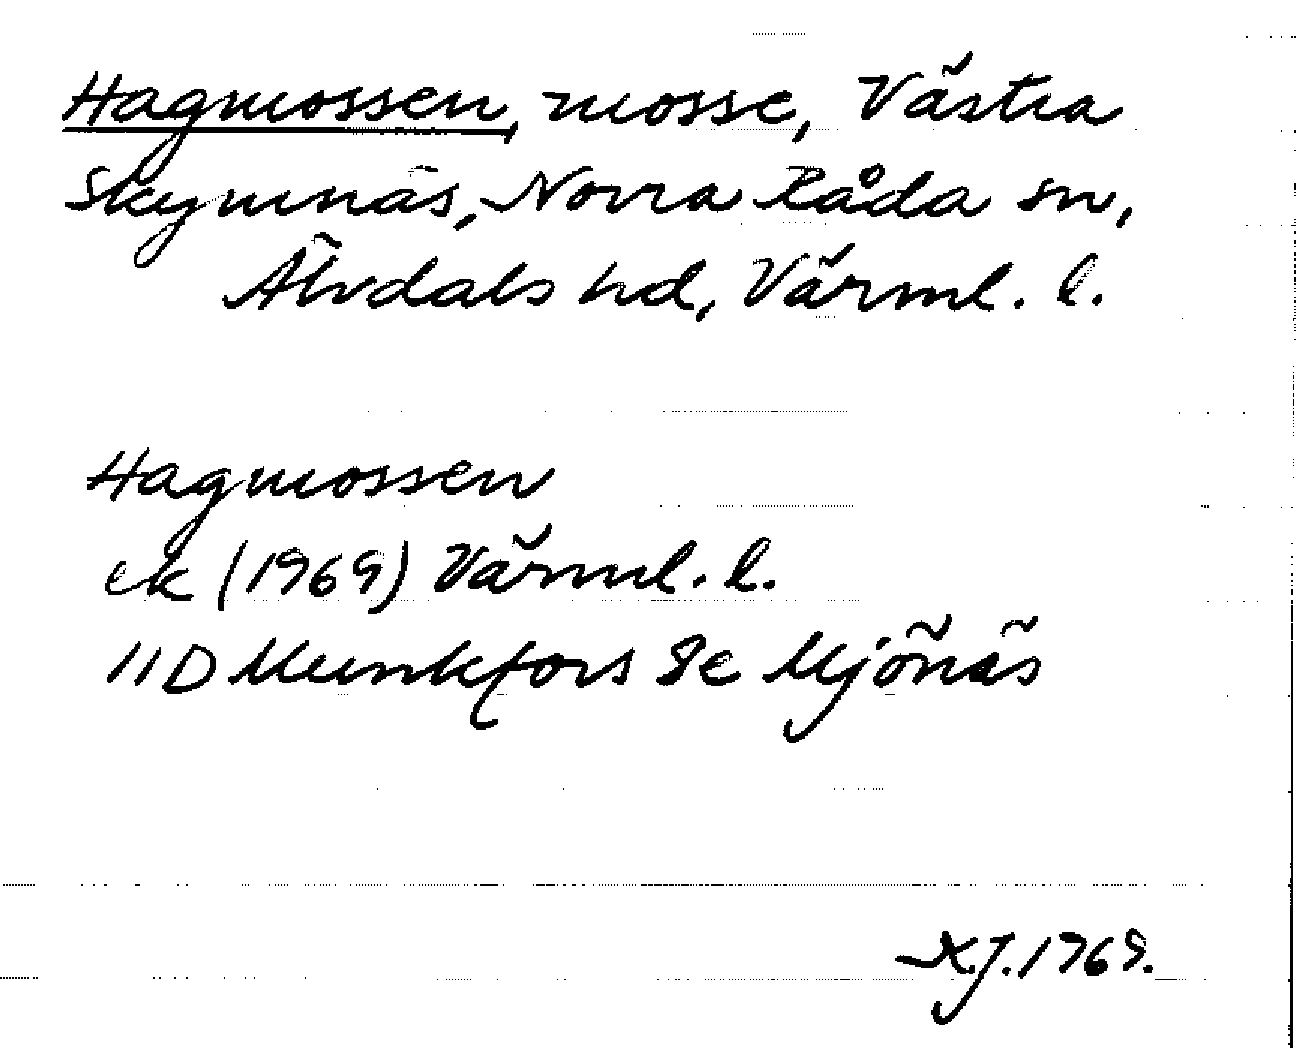 Hagmossen, mosse, Västra
Skymnäs, Norra Råda sn,
Älvdals hd, Värml. l.
Hagmossen
ek (1969) Värml. l.
11D Munkfors 8e Mjönäs
K.J. 1969.